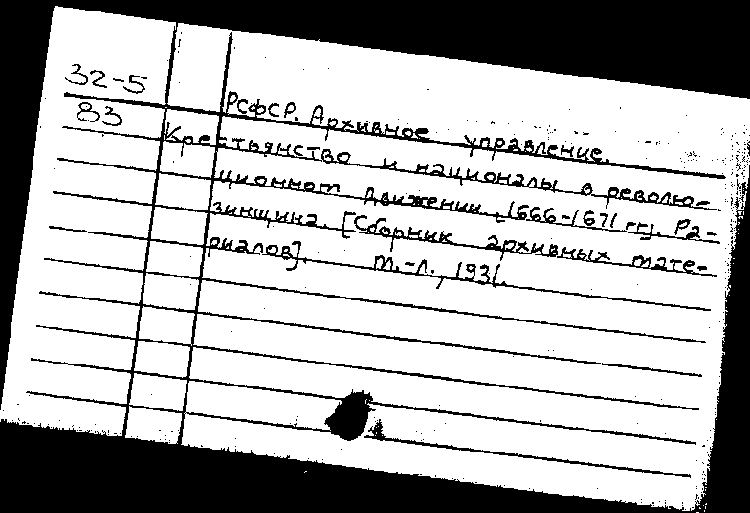 32-5
83
РСФСР. Архивное управление.
Крестьянство и националы в револю-
ционном движении, 1666-1671 гг. Ра-
зинщина. [Сборник архивных мате-
риалов]. М.-Л., 1931.